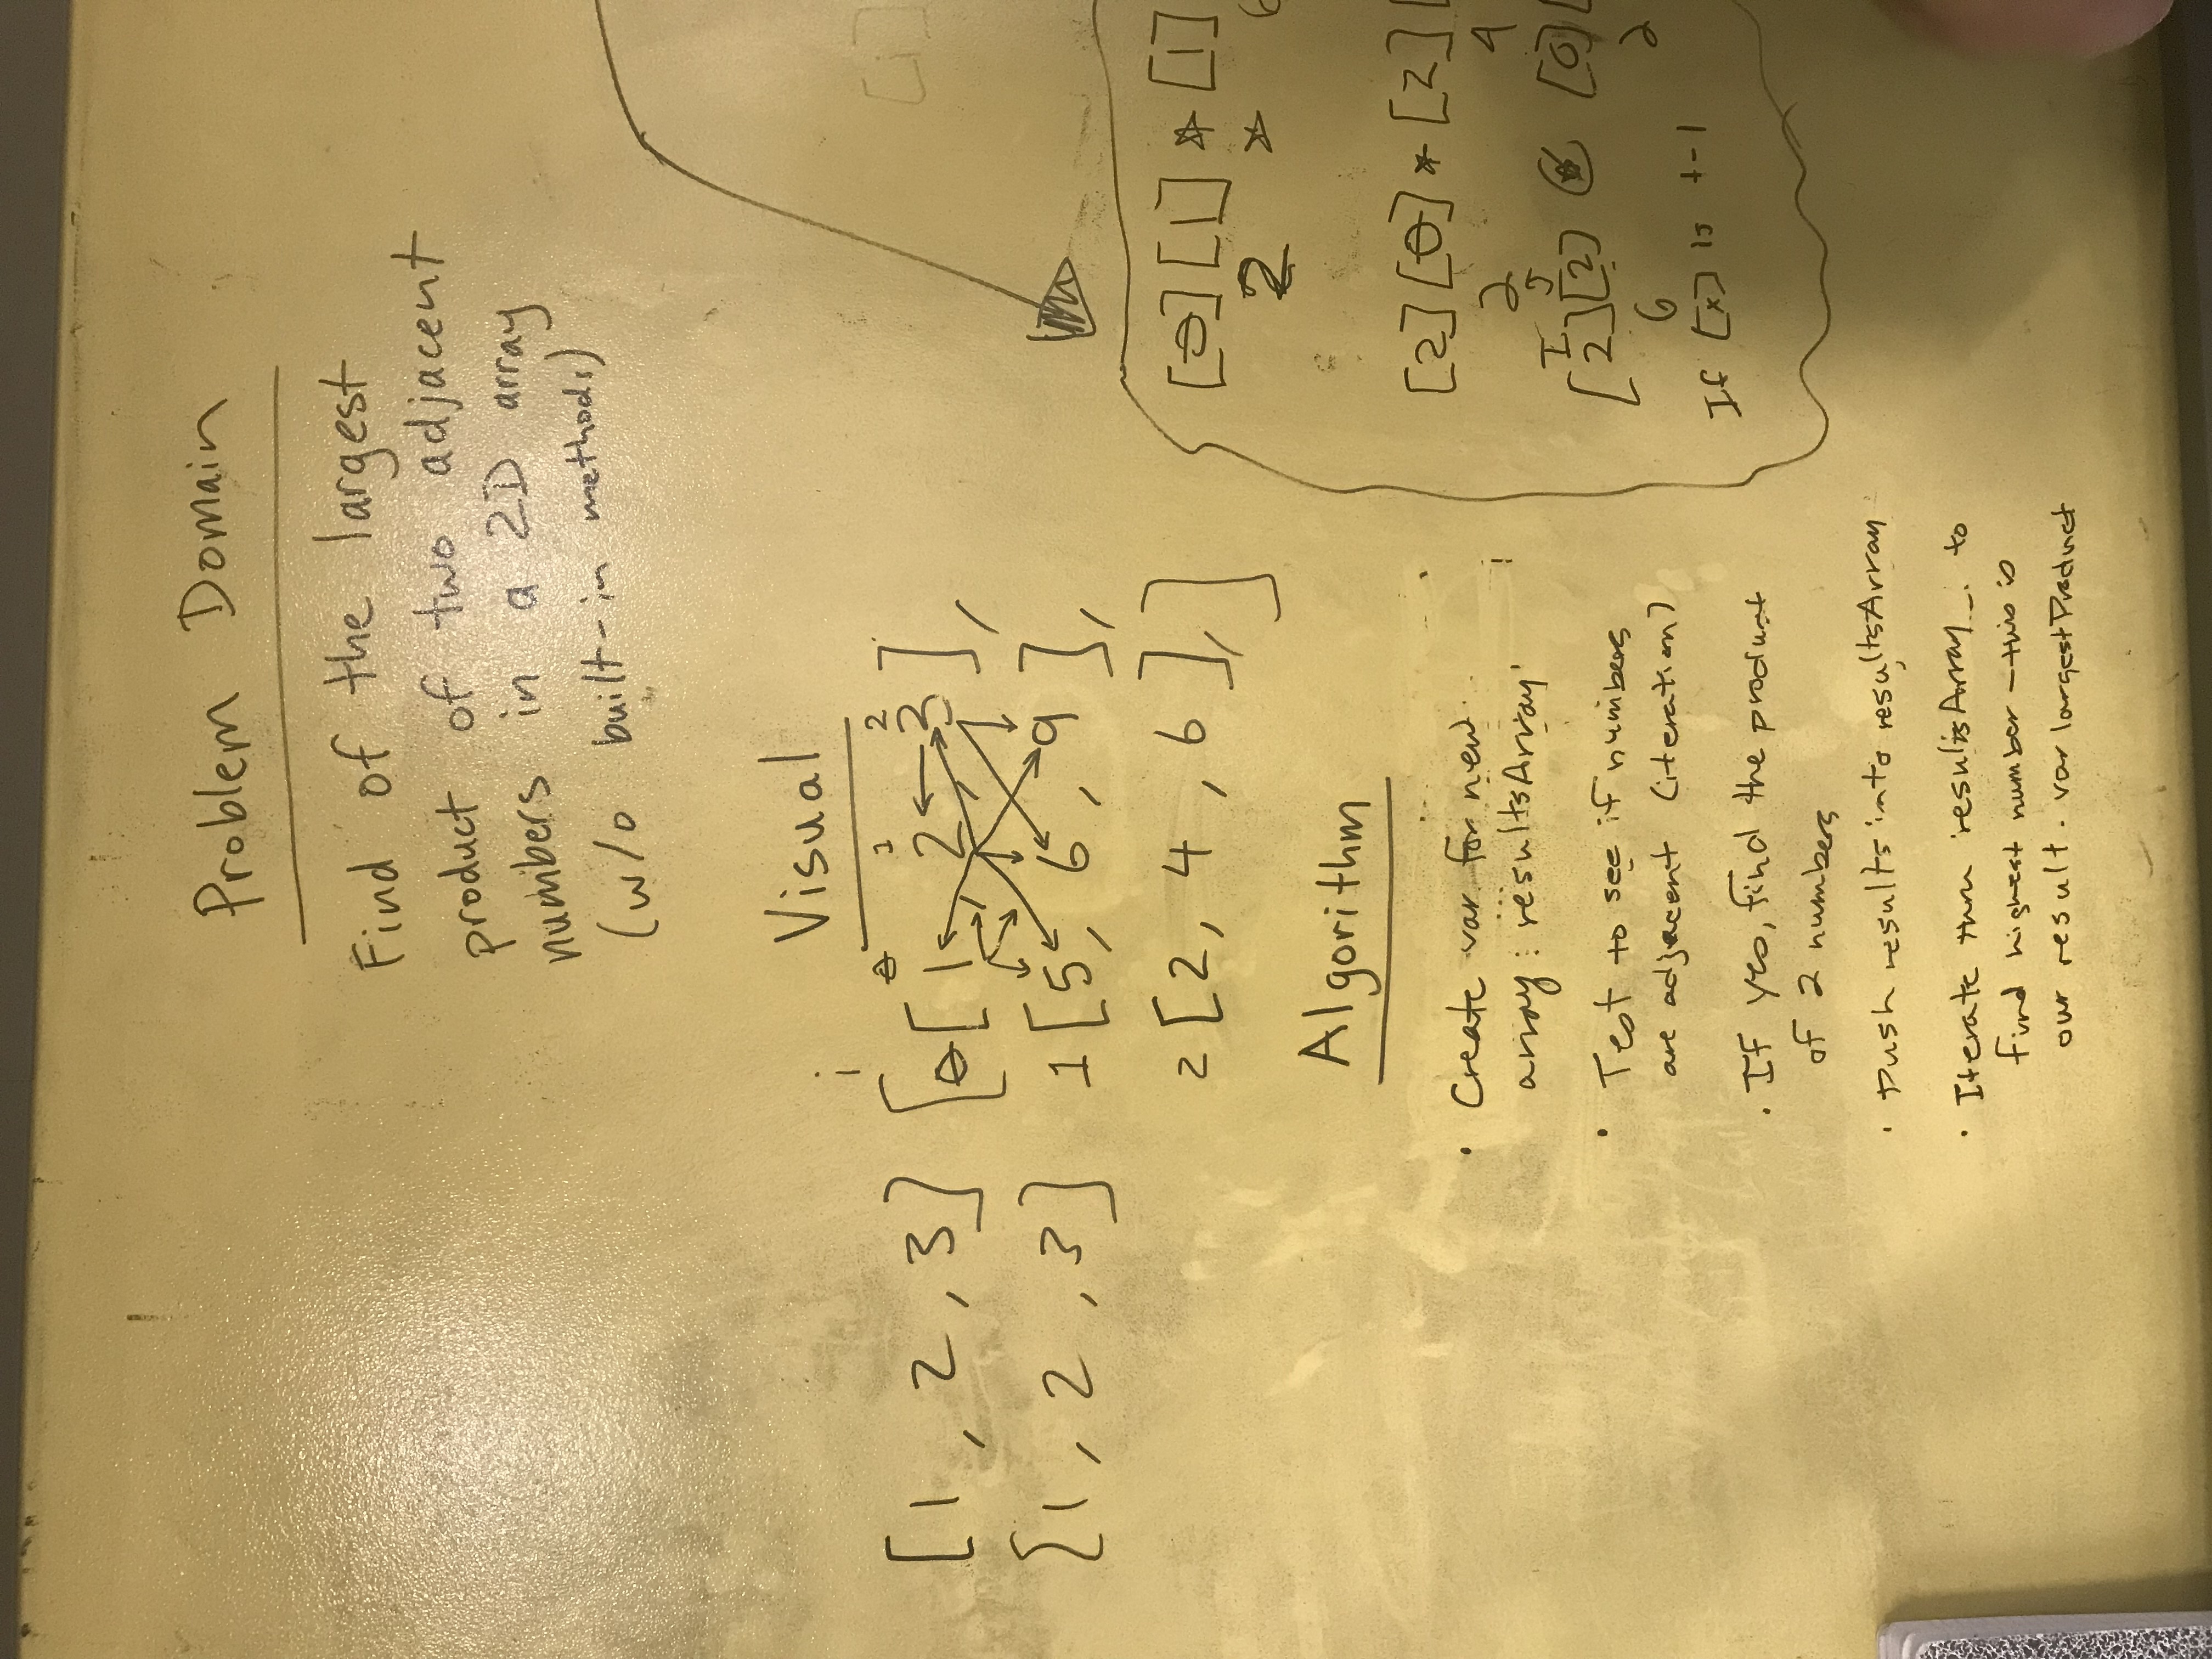 Problem Domain
Find of the largest
product of two adjacent
numbers in a 2D array
(w/o built-in methods)
Visual
i
0 1 2
[1, 2, 3] [0[1 2 3],
[1, 2, 3] 1[5, 6, 9],
2[2, 4, 6],]
Algorithm
· Create var for new
array: resultsArray
· Test to see if numbers
are adjacent (iteration)
· If yes, find the product
of 2 numbers
· Push results into resultsArray
· Iterate thru resultsArray to
find highest number - this is
our result. var largestProduct
[i]
[0][1] * [1]
2 * 6
[2][0] * [2][
2 4
I J
[2][2] * [0][
6 2
If [x] is +-1